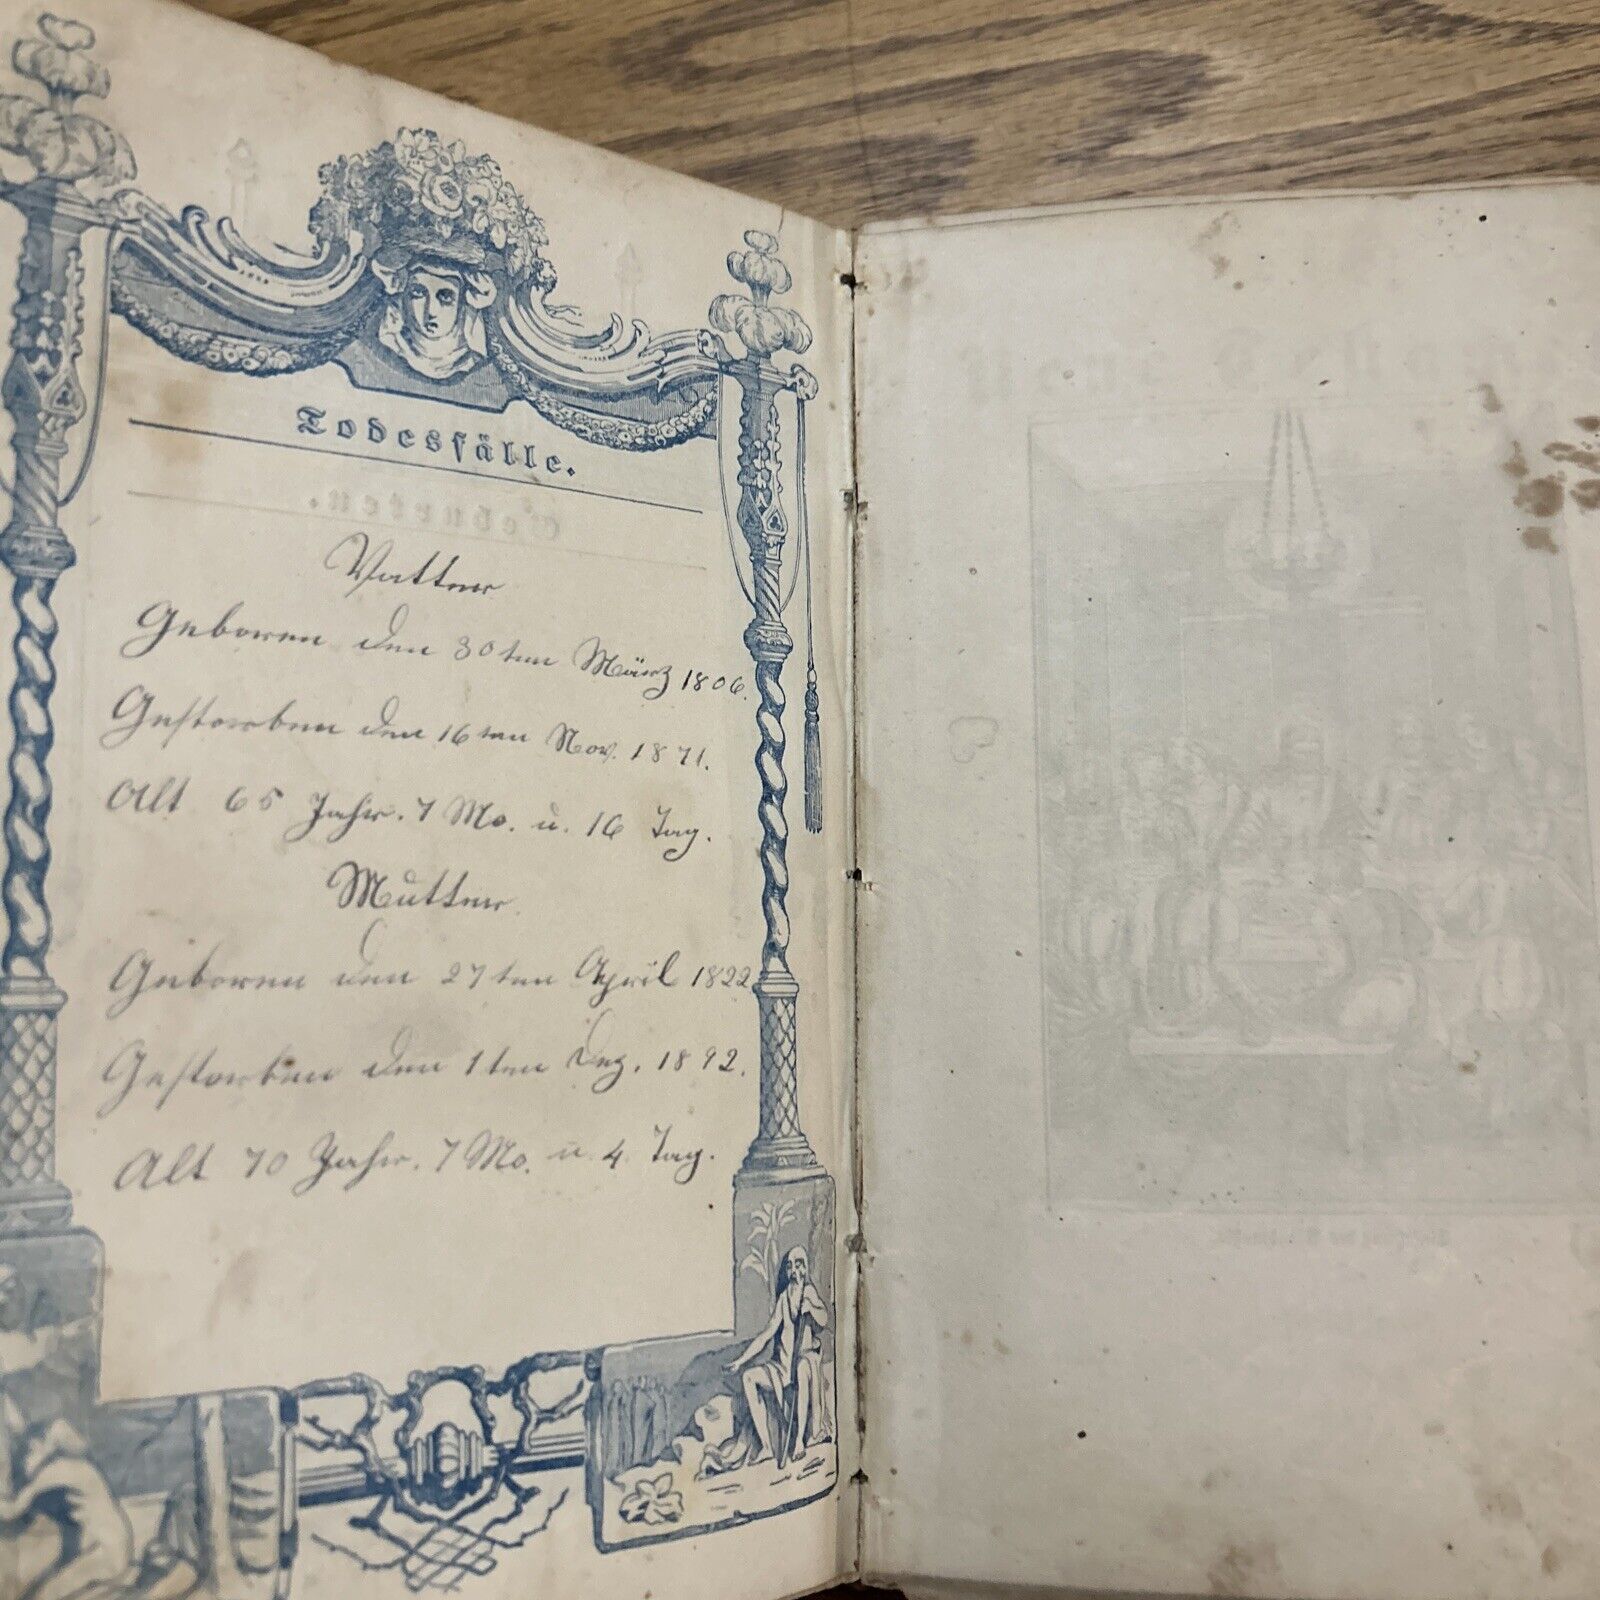 Todesfälle.
Geburten.
Vatter
Geboren den 30ten März 1806.
Gestorben den 16ten Nov. 1871.
Alt 65 Jahr. 7 Mo. u. 16 Tag.
Mutter
Geboren den 27ten April 1822
Gestorben den 1ten Dez. 1892.
Alt 70 Jahr. 7 Mo. u. 4 Tag.